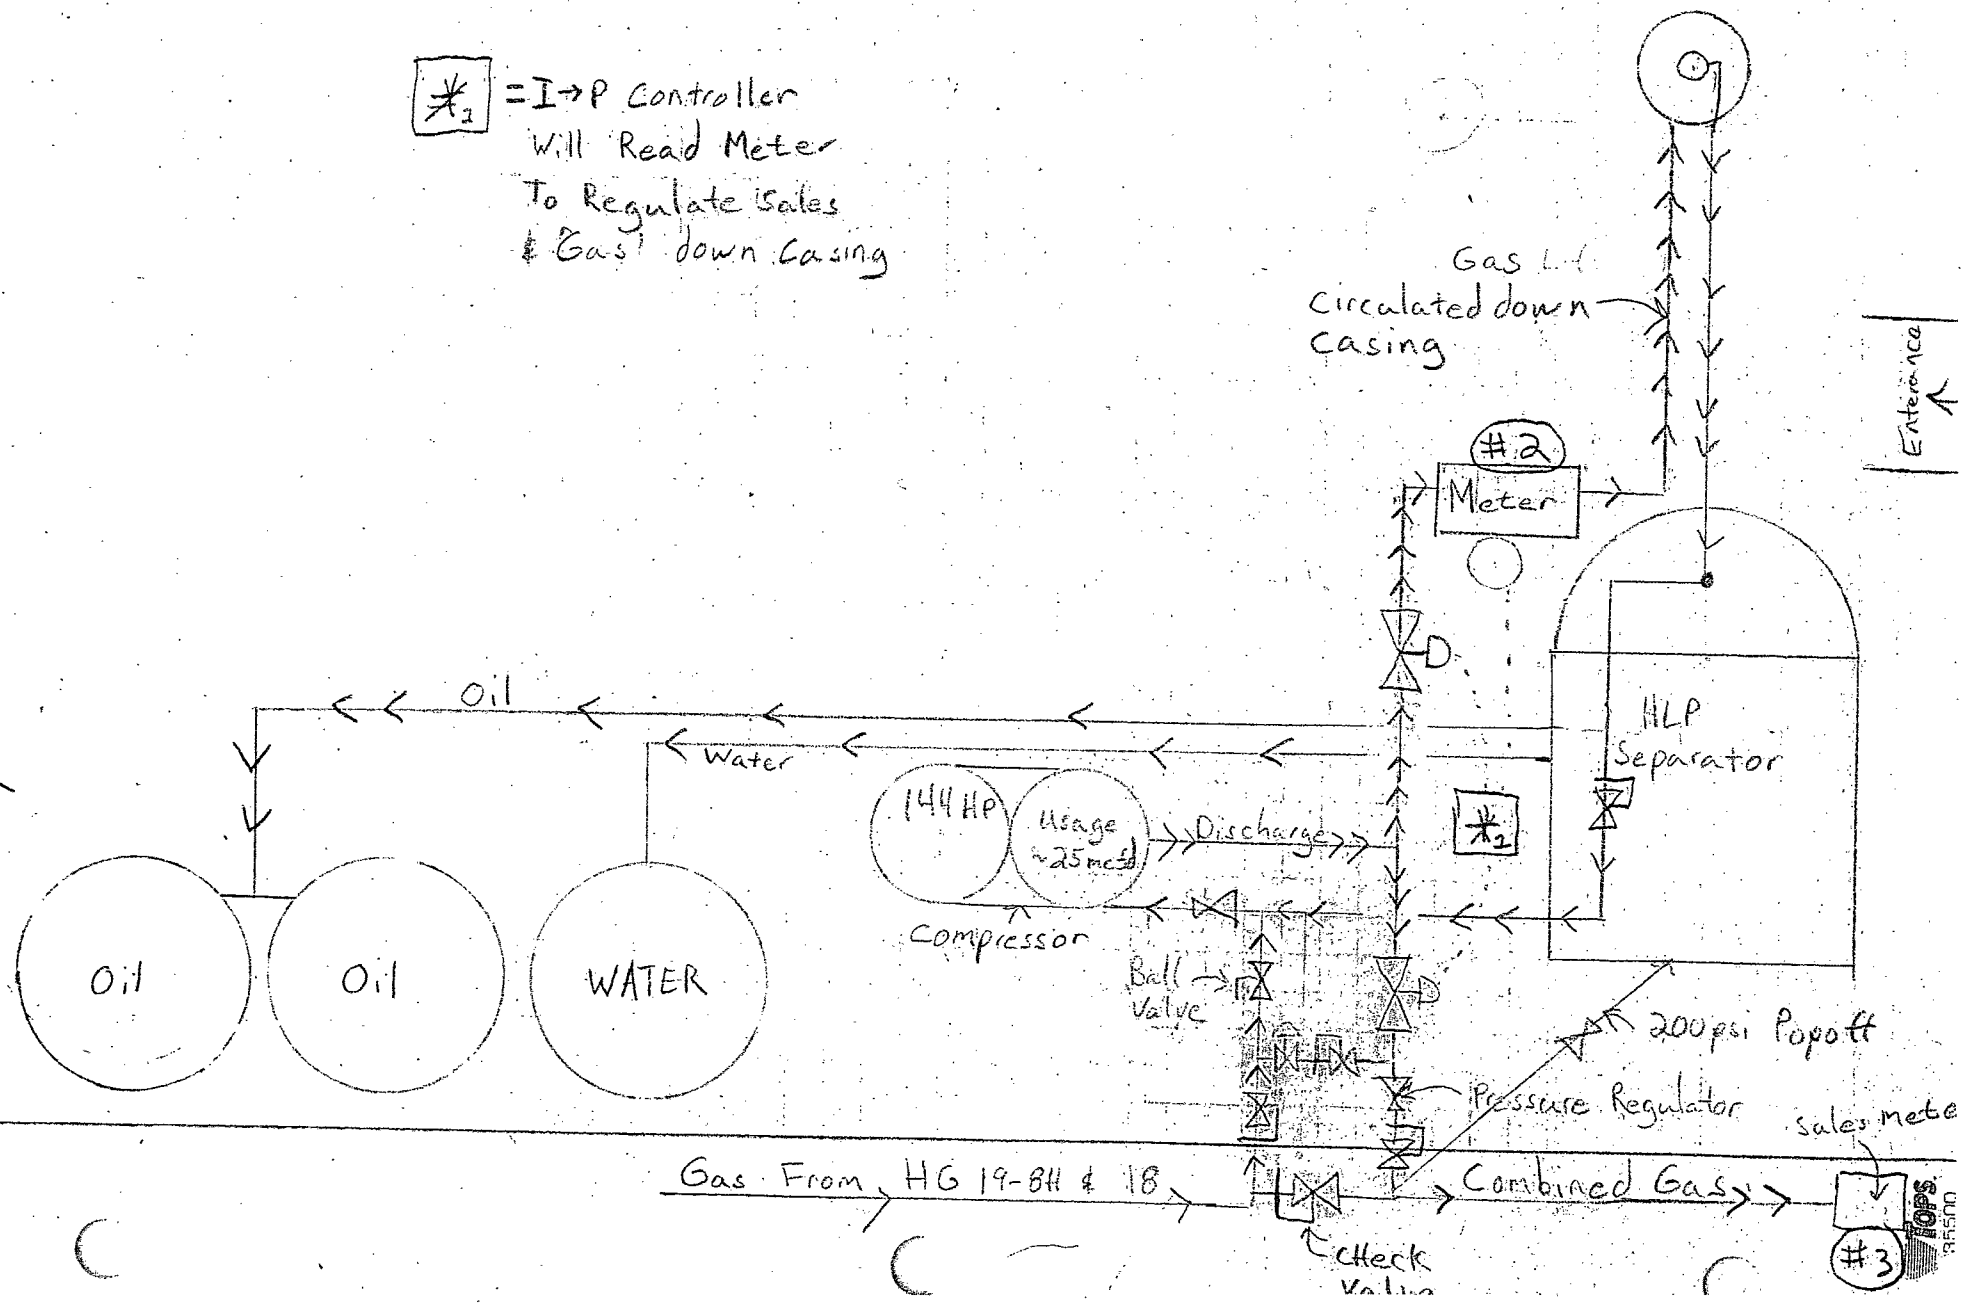 *1 = I→P Controller
Will Read Meter
To Regulate Sales
& Gas down Casing
Gas
Circulated down
Casing
Enterance
#2
Meter
Oil
Water
HLP
Separator
144 HP
Usage
~25mcfd
Discharge
*1
Compressor
Oil
Oil
WATER
Ball
Valve
200psi Popoff
Pressure Regulator
Sales Mete
Gas From HG 19-8H & 18
Combined Gas
TOPS
35500
#3
CHeck
Valve